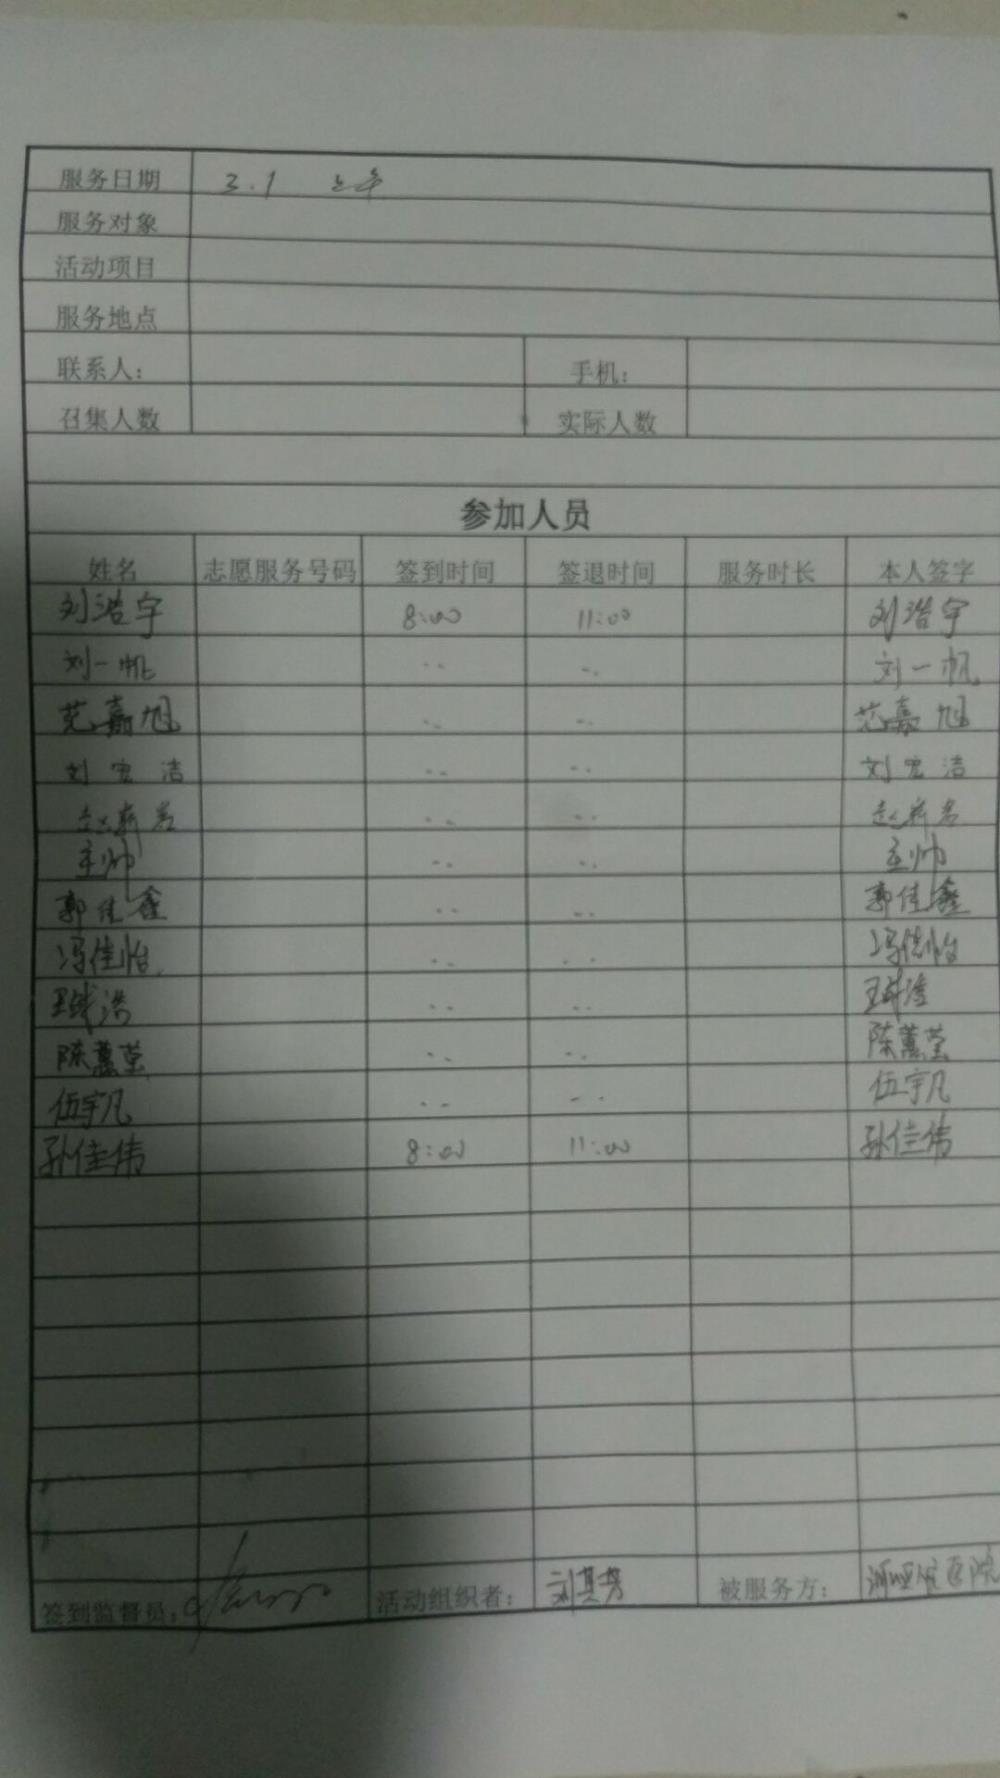 服务日期 3.1 上午
服务对象
活动项目
服务地点
联系人： 手机：
召集人数 实际人数
参加人员
姓名 志愿服务号码 签到时间 签退时间 服务时长 本人签字
刘浩宇 8:00 11:00 刘浩宇
刘一帆 ·· ·· 刘一帆
范嘉旭 ·· ·· 范嘉旭
刘宏洁 ·· ·· 刘宏洁
赵新若 ·· ·· 赵新若
王帅 ·· ·· 王帅
郭佳鑫 ·· ·· 郭佳鑫
冯佳怡 ·· ·· 冯佳怡
·· ··
陈蕙莹 ·· ·· 陈蕙莹
伍宇凡 ·· ·· 伍宇凡
孙佳伟 8:00 11:00 孙佳伟
签到监督员： 活动组织者： 刘其芳 被服务方：